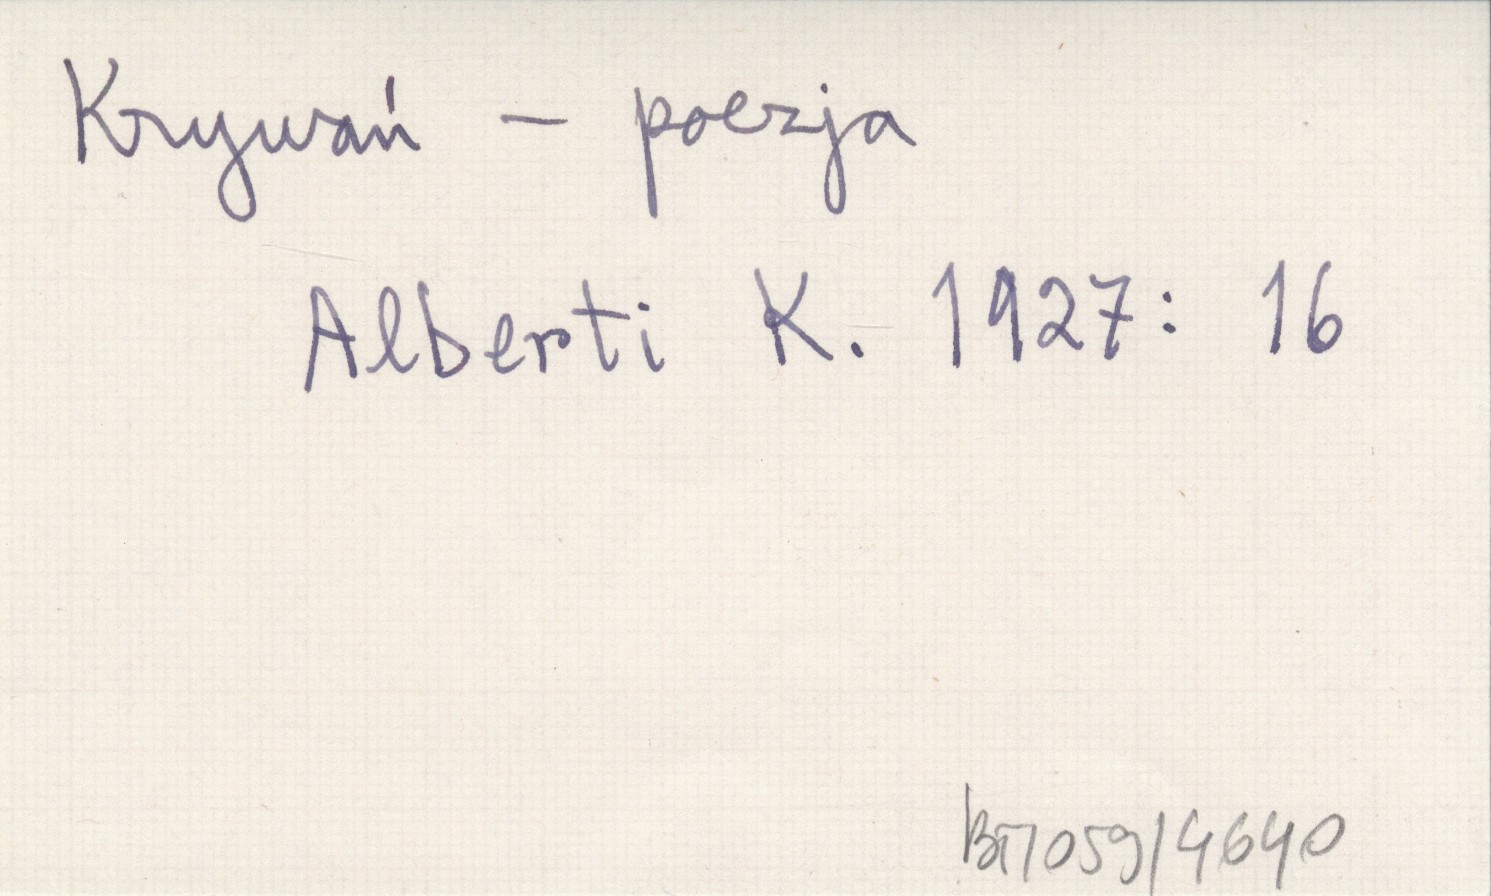 Krywań – poezja
Alberti K. 1927: 16
BT/059/4640